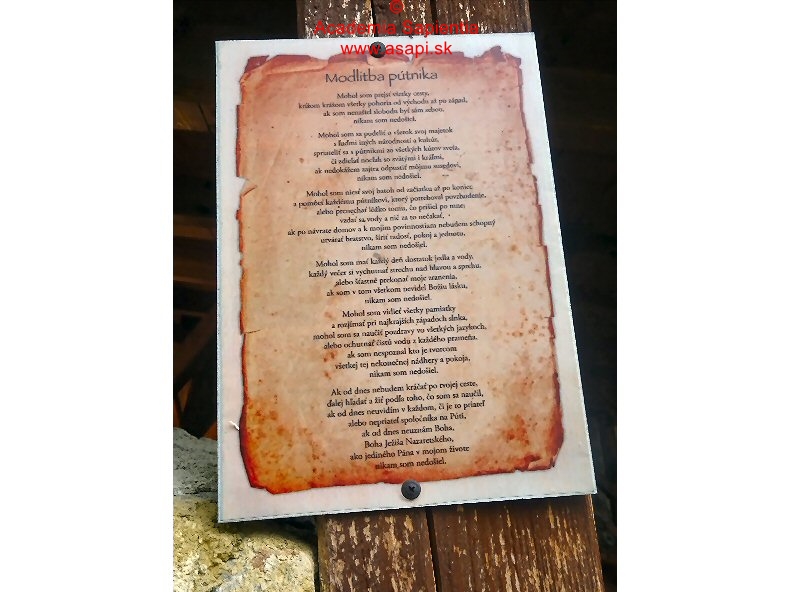 ©
Academia Sapientia
www.asapi.sk
Modlitba pútnika
Mohol som prejsť všetky cesty,
krížom krážom všetky pohoria od východu až po západ,
ak som nenašiel slobodu byť sám sebou,
nikam som nedošiel.
Mohol som sa podeliť o všetok svoj majetok
s ľuďmi iných národností a kultúr,
spriateliť sa s pútnikmi zo všetkých kútov sveta,
či zdieľať nocľah so svätými i kráľmi,
ak nedokážem zajtra odpustiť môjmu susedovi,
nikam som nedošiel.
Mohol som niesť svoj batoh od začiatku až po koniec
a pomôcť každému pútnikovi, ktorý potreboval povzbudenie,
alebo prenechať lôžko tomu, čo prišiel po mne,
vzdať sa vody a nič za to nečakať,
ak po návrate domov a k mojim povinnostiam nebudem schopný
utvárať bratstvo, šíriť radosť, pokoj a jednotu,
nikam som nedošiel.
Mohol som mať každý deň dostatok jedla a vody,
každý večer si vychutnať strechu nad hlavou a sprchu,
alebo šťastne prekonať moje zranenia,
ak som v tom všetkom nevidel Božiu lásku,
nikam som nedošiel.
Mohol som vidieť všetky pamiatky
a rozjímať pri najkrajších západoch slnka,
mohol som sa naučiť pozdravy vo všetkých jazykoch,
alebo ochutnať čistú vodu z každého prameňa,
ak som nespoznal kto je tvorcom
všetkej tej nekonečnej nádhery a pokoja,
nikam som nedošiel.
Ak od dnes nebudem kráčať po tvojej ceste,
ďalej hľadať a žiť podľa toho, čo som sa naučil,
ak od dnes neuvidím v každom, či je to priateľ
alebo nepriateľ spoločníka na Púti,
ak od dnes neuznám Boha,
Boha Ježiša Nazaretského,
ako jediného Pána v mojom živote
nikam som nedošiel.